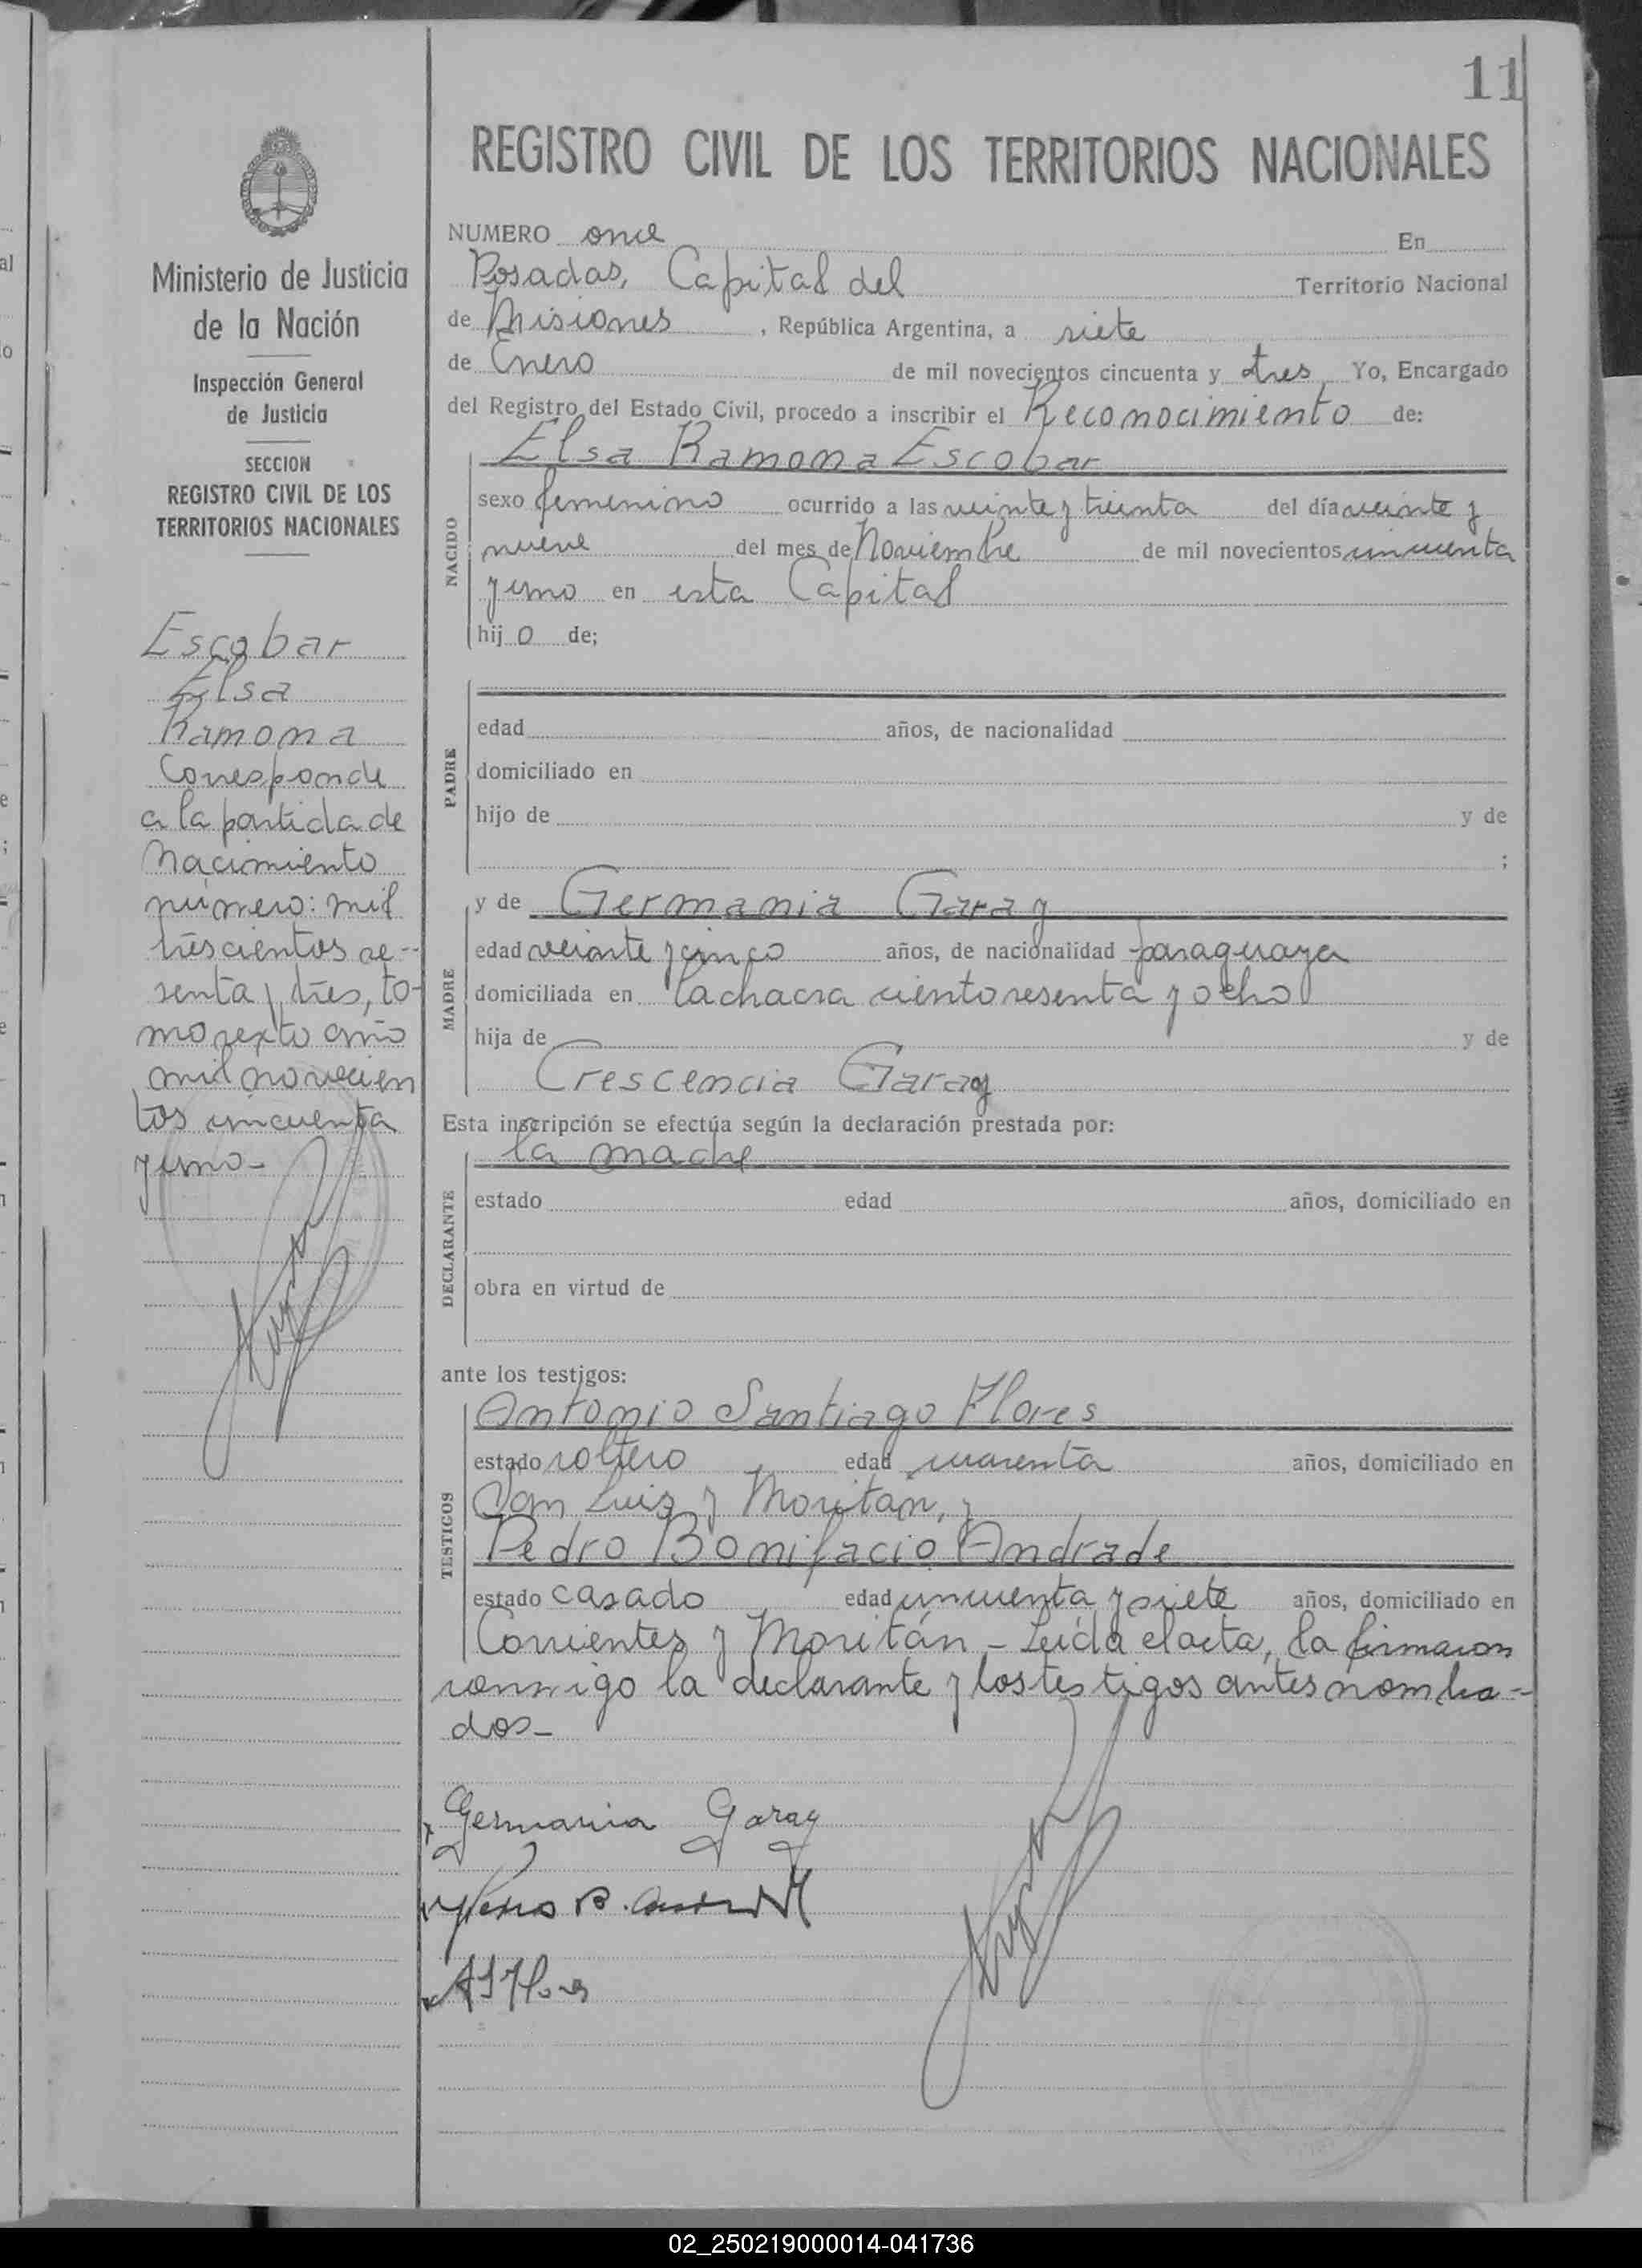 11
REGISTRO CIVIL DE LOS TERRITORIOS NACIONALES
Ministerio de Justicia
de la Nación
Inspección General
de Justicia
SECCION
REGISTRO CIVIL DE LOS
TERRITORIOS NACIONALES
Escobar
Elsa
Ramona
Corresponde
a la partida de
nacimiento
número: mil
trescientos se-
senta y tres, to-
mo sexto año
mil novecien
tos cincuenta
y uno-
NUMERO once En
Posadas, Capital del Territorio Nacional
de Misiones, República Argentina, a siete
de Enero de mil novecientos cincuenta y tres, Yo, Encargado
del Registro del Estado Civil, procedo a inscribir el Reconocimiento de:
Elsa Ramona Escobar
NACIDO
sexo femenino ocurrido a las veinte y treinta del día veinte y
nueve del mes de Noviembre de mil novecientos cincuenta
y uno en esta Capital
hij o de;
PADRE
edad años, de nacionalidad
domiciliado en
hijo de y de
;
MADRE
y de Germania Garay
edad veinte y cinco años, de nacionalidad paraguaya
domiciliada en la chacra ciento sesenta y ocho
hija de y de
Crescencia Garay
Esta inscripción se efectúa según la declaración prestada por:
la madre
DECLARANTE
estado edad años, domiciliado en
obra en virtud de
ante los testigos:
TESTIGOS
Antonio Santiago Flores
estado soltero edad cuarenta años, domiciliado en
San Luis y Moritan, y
Pedro Bonifacio Andrade
estado casado edad cincuenta y siete años, domiciliado en
Corrientes y Moritán - Leída el acta, la firmaron
conmigo la declarante y los testigos antes nombra-
dos-
Germania Garay
Pedro B.
A S Flores
02_250219000014-041736